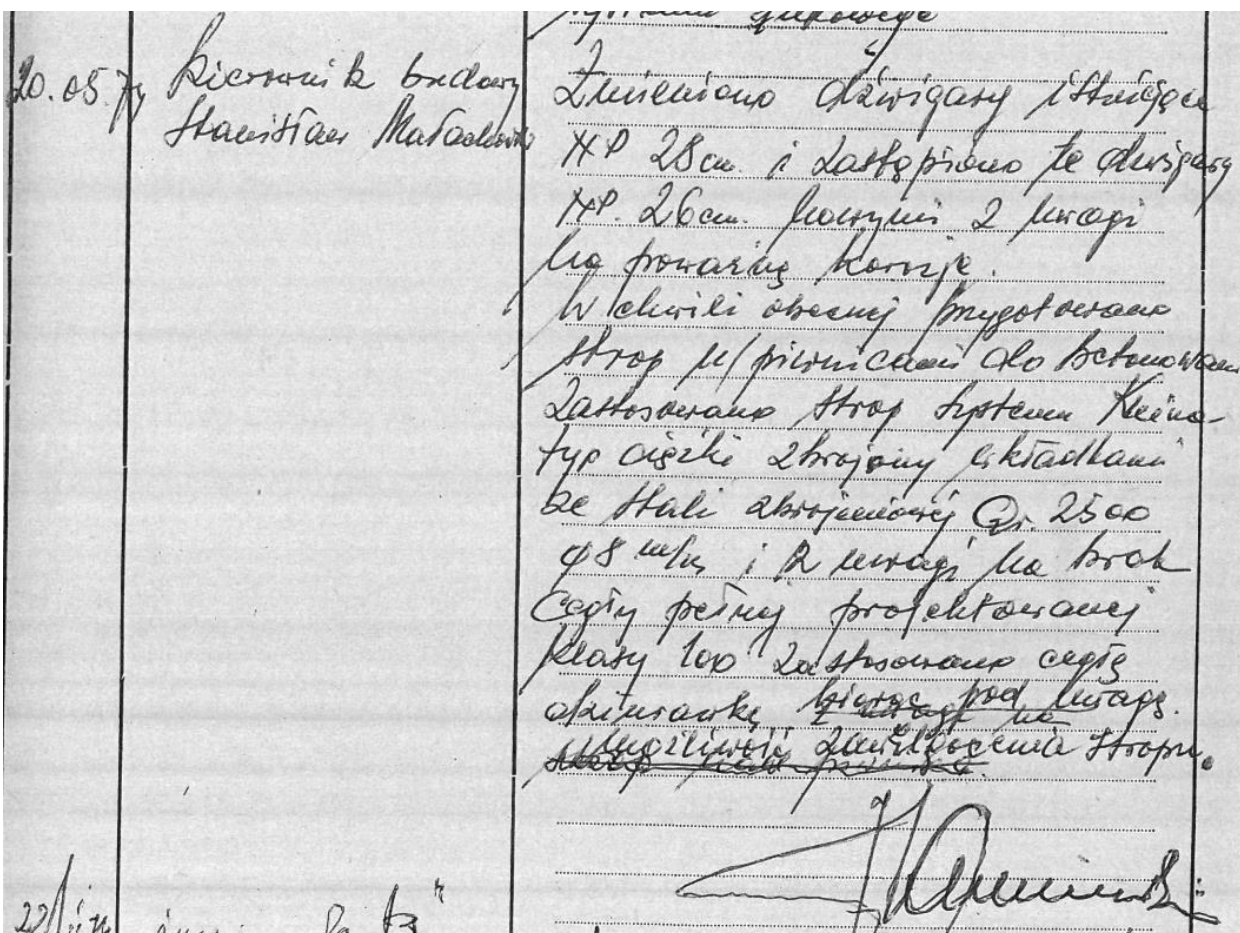 łukowego
20.05 Kierownik budowy
Stanisław
Zmieniono dźwigary istniejące
NP 28 cm. i zastąpiono te dźwigary
NP. 26 cm. nowymi z uwagi
na poważną korozję.
W chwili obecnej przygotowano
strop n/piwnicami do betonowani
Zastosowano strop systemu Kleina
typ ciężki zbrojony wkładkami
ze stali zbrojeniowej Qr. 2500
φ8 m/m i z uwagi na brak
cegły pełnej projektowanej
klasy 100 zastosowano cegłę
dziurawkę biorąc pod uwagę.
możliwość zawilgocenia stropu.